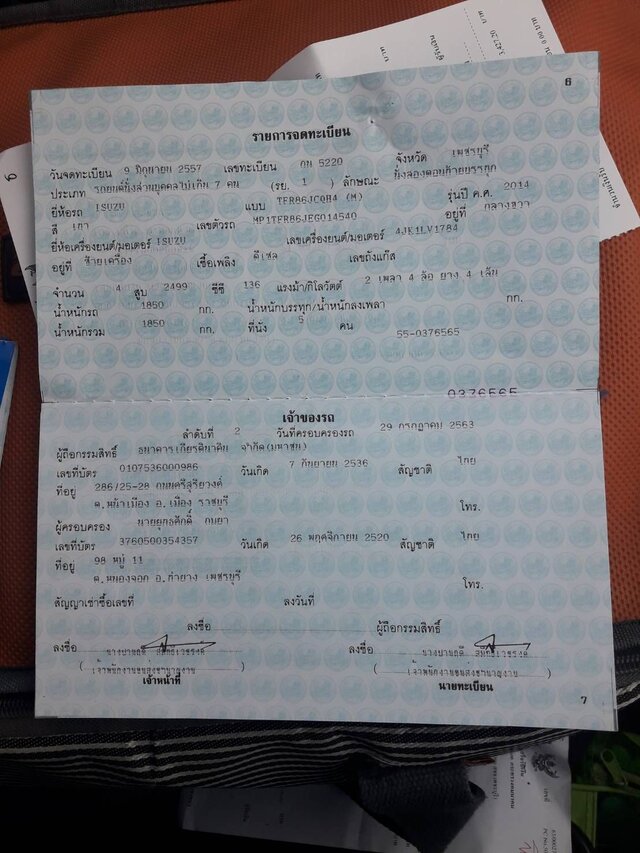 3,427.20 บาท
6
รายการจดทะเบียน
วันจดทะเบียน 9 มิถุนายน 2557 เลขทะเบียน กน 5220 จังหวัด เพชรบุรี
ประเภท รถยนต์นั่งส่วนบุคคลไม่เกิน 7 คน (รย. 1 ) ลักษณะ นั่งสองตอนท้ายบรรทุก
ยี่ห้อรถ ISUZU แบบ TFR86JCQH4 (M) รุ่นปี ค.ศ. 2014
สี เทา เลขตัวรถ MP1TFR86JEG014540 อยู่ที่ กลางขวา
ยี่ห้อเครื่องยนต์/มอเตอร์ ISUZU เลขเครื่องยนต์/มอเตอร์ 4JK1LV1784
อยู่ที่ ซ้ายเครื่อง เชื้อเพลิง ดีเซล เลขถังแก๊ส
จำนวน 4 สูบ 2499 ซีซี 136 แรงม้า/กิโลวัตต์ 2 เพลา 4 ล้อ ยาง 4 เส้น
น้ำหนักรถ 1850 กก. น้ำหนักบรรทุก/น้ำหนักลงเพลา กก.
น้ำหนักรวม 1850 กก. ที่นั่ง 5 คน
55-0376565
0376565
เจ้าของรถ
ลำดับที่ 2 วันที่ครอบครองรถ 29 กรกฎาคม 2563
ผู้ถือกรรมสิทธิ์ ธนาคารเกียรตินาคิน จำกัด(มหาชน)
เลขที่บัตร 0107536000986 วันเกิด 7 กันยายน 2536 สัญชาติ ไทย
ที่อยู่ 286/25-28 ถนนศรีสุริยวงศ์
ต.หน้าเมือง อ.เมือง ราชบุรี โทร.
ผู้ครอบครอง นายยุทธศักดิ์ กบยา
เลขที่บัตร 3760500354357 วันเกิด 26 พฤศจิกายน 2520 สัญชาติ ไทย
ที่อยู่ 98 หมู่ 11
ต.หนองจอก อ.ท่ายาง เพชรบุรี โทร.
สัญญาเช่าซื้อเลขที่ ลงวันที่
ลงชื่อ ผู้ถือกรรมสิทธิ์
ลงชื่อ ลงชื่อ
( เจ้าพนักงานขนส่งชำนาญงาน ) ( เจ้าพนักงานขนส่งชำนาญงาน )
เจ้าหน้าที่ นายทะเบียน
7